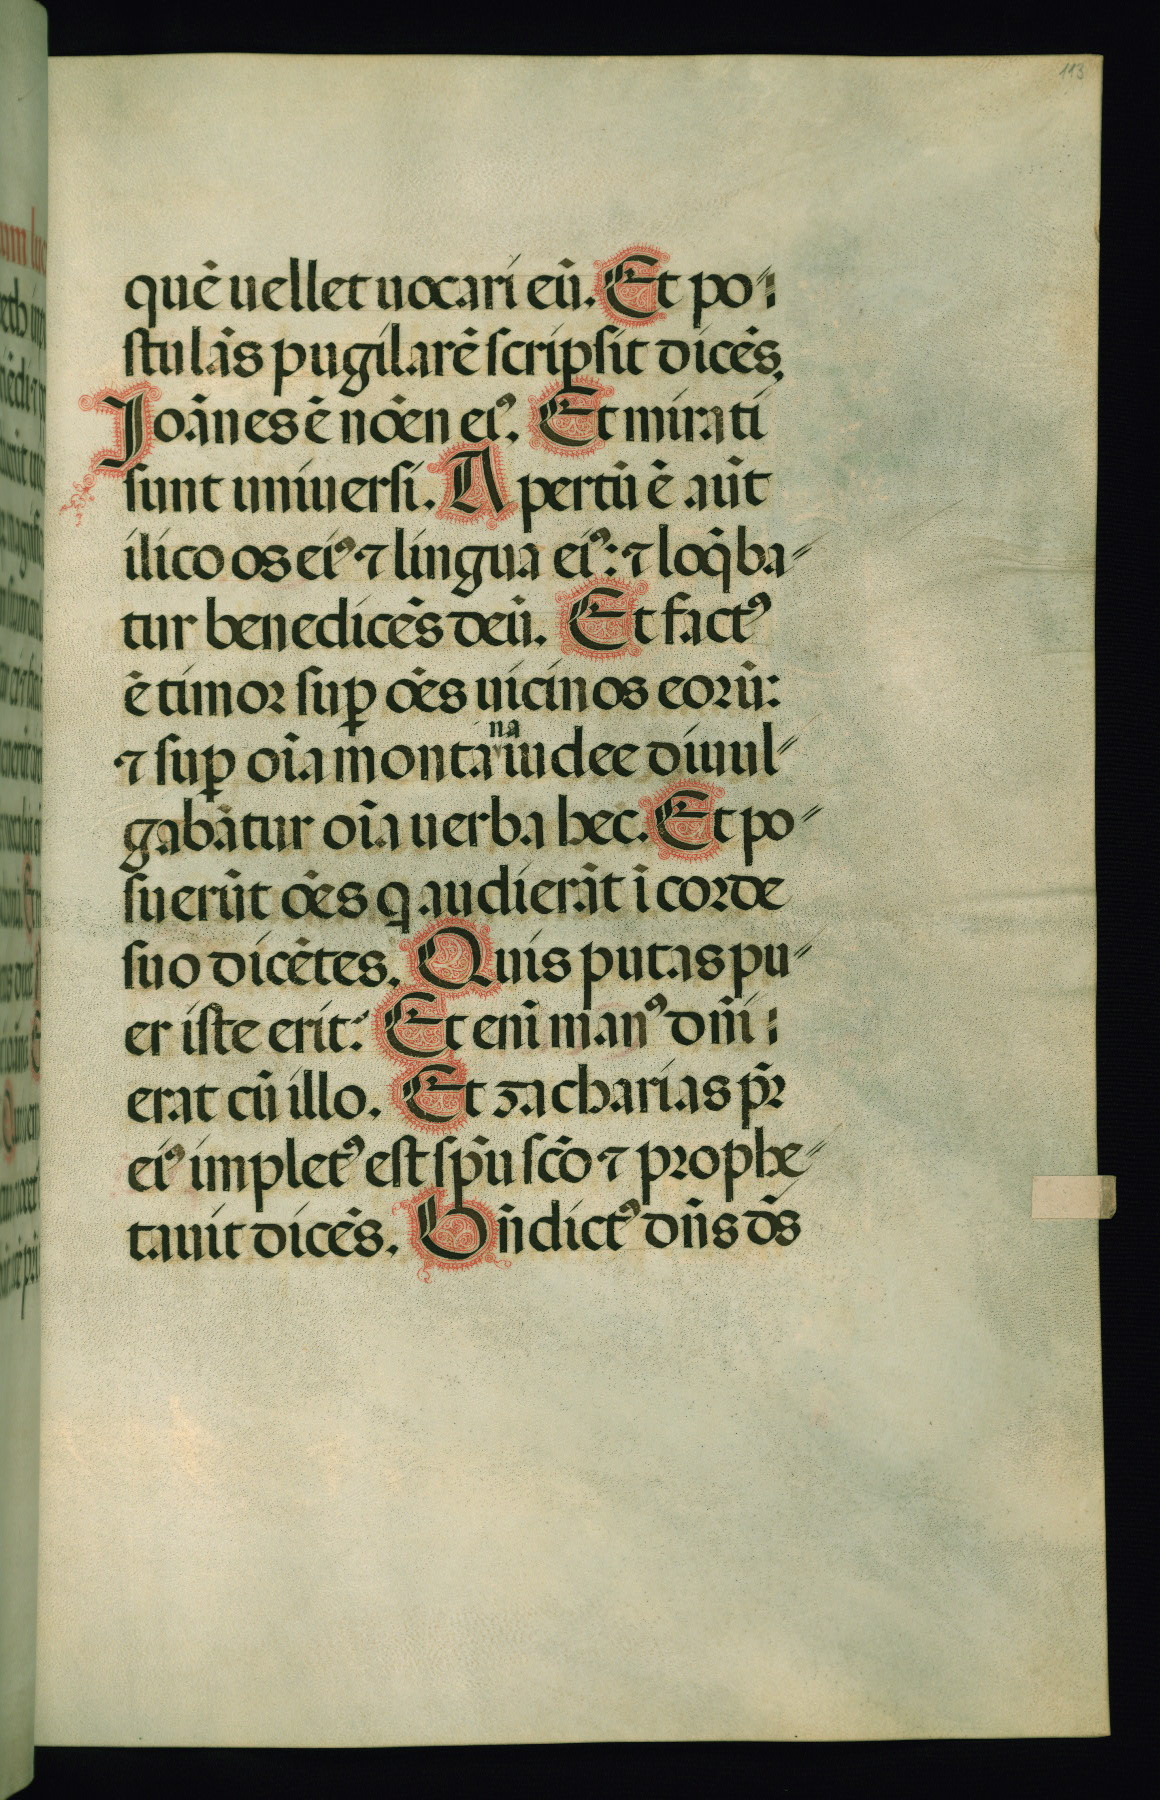 113
quē uellet uocari eū. Et po⸗
stulās pugilarē scripsit dicēs.
Ioānes ē nōen eiꝰ. Et mirati
sunt uniuersi. Apertū ē aūt
ilico os eiꝰ ⁊ lingua eiꝰ: ⁊ loq̄ba⸗
tur benedicēs deū. Et factꝰ
ē timor sup̱ ōēs uicinos eorū:
⁊ sup̱ oīa montana iudee diuul⸗
gabātur oīa uerba hec. Et po⸗
suerūt ōēs q audierāt ī corde
suo dicētes. Quis putas pu⸗
er iste erit: Et enī manꝰ dn̄i
erat cū illo. Et zacharias pr̄
eiꝰ impletꝰ est sp̄u scō ⁊ prophe⸗
tauit dicēs. Bn̄dictꝰ dn̄s ds̄